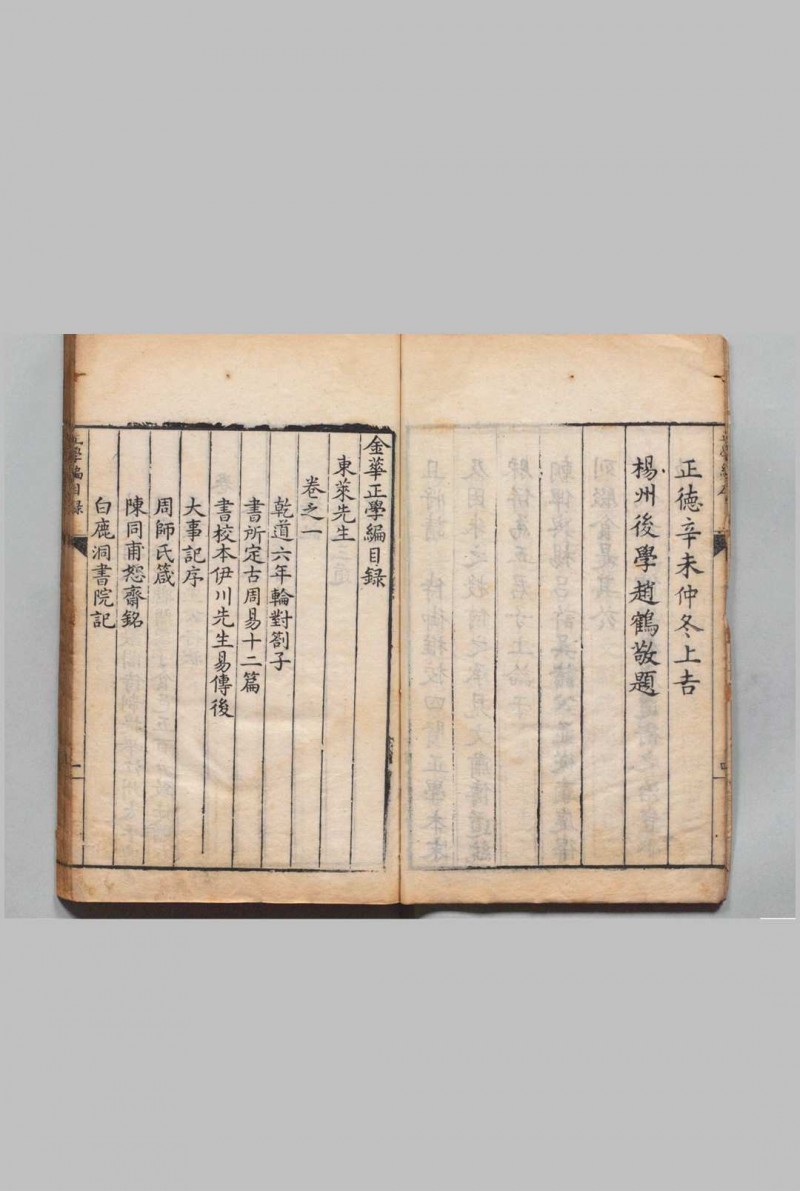 正德辛未仲冬上吉
楊州後學趙鶴敬題
金華正學編目録
東萊先生
卷之一
乾道六年輪對劄子
書所定古周易十二篇
書校本伊川先生易傳後
大事記序
周師氏箴
陳同甫恕齋銘
白鹿洞書院記
正學編目録